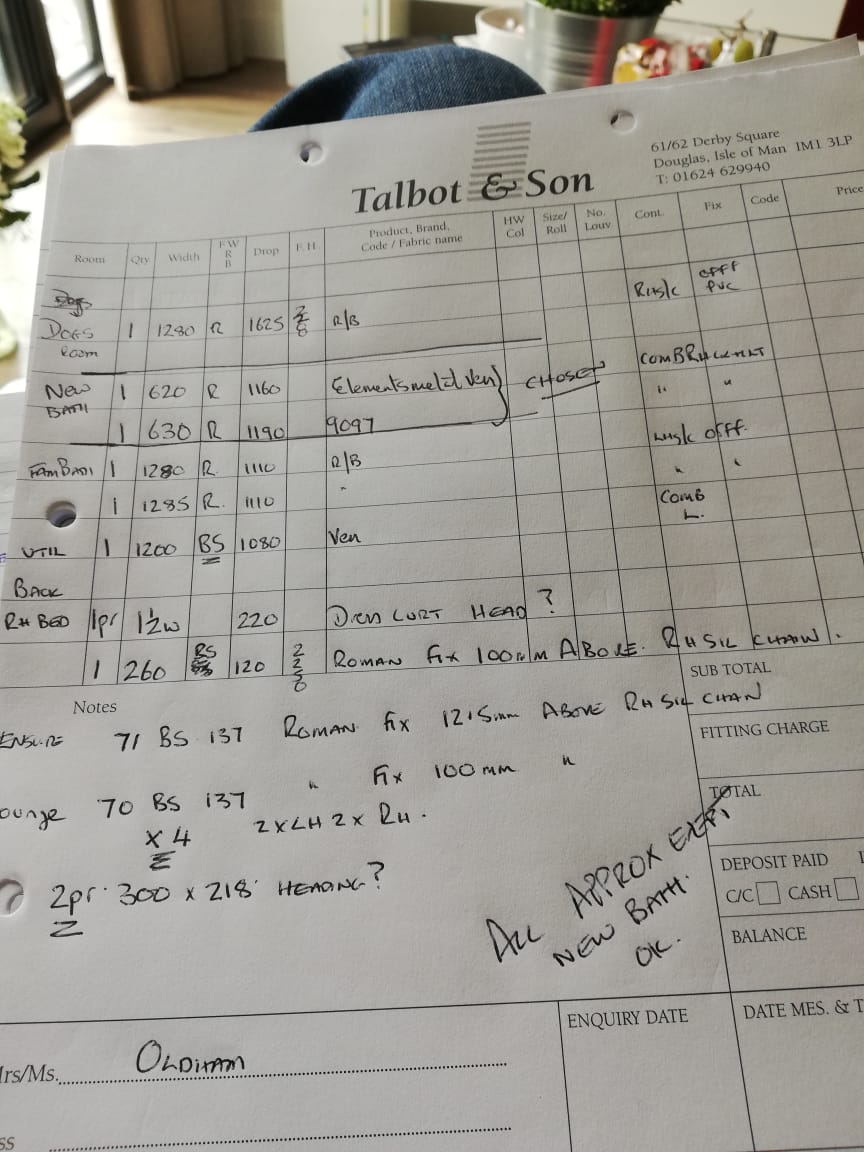 61/62 Derby Square
Douglas, Isle of Man IM1 3LP
T: 01624 629940
Talbot & Son
Room Qty Width F W R B Drop F.H. Product, Brand, Code / Fabric name HW Col Size/ Roll No. Louv Cont. Fix Code Price
Dogs
Room 1 1280 R 1625 R/B
PVC
New
Bath 1 620 R 1160 Ven CHOSEN
1 630 R 1190 9097
Fam Bath 1 1280 R 1110 R/B
1 1285 R. 1110 "
Comb
L.
UTIL 1 1200 BS 1080 Ven
BACK
RH BED 1pr 1½w 220 CURT HEAD ?
1 260 BS 120 ROMAN Fix 100mm ABOVE. RH SIL CHAIN.
Notes
ENSUITE 71 BS 137 ROMAN Fix 12.5mm ABOVE RH SIL CHAIN
ounge 70 BS 137 " Fix 100mm "
X 4 2 x LH 2 x RH.
2pr. 300 x 218 HEADING?
ALL APPROX
NEW BATH.
OK.
SUB TOTAL
FITTING CHARGE
TOTAL
DEPOSIT PAID
C/C CASH
BALANCE
ENQUIRY DATE
DATE MES. & T
Mrs/Ms. OLDHAM
ss